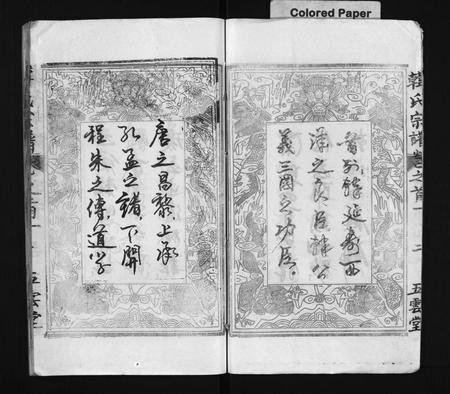 Colored Paper
韓氏宗譜 卷之首一 二 五雲堂
延壽西
漢之良臣 公
義三國之功臣
唐之昌黎上承
孔孟之緒下開
程朱之傳道學